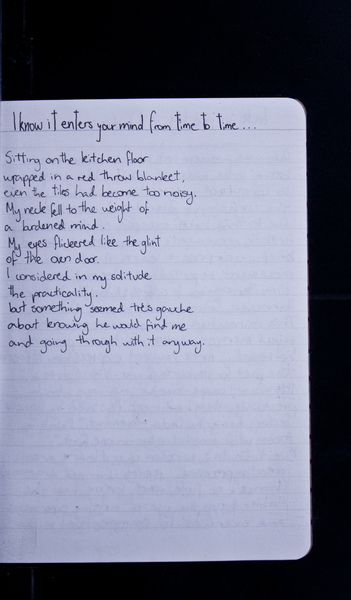 I know it enters your mind from time to time...
Sitting on the kitchen floor
wrapped in a red throw blanket,
even the tiles had become too noisy.
My neck fell to the weight of
a burdened mind.
My eyes flickered like the glint
of the oven door.
I considered in my solitude
the practicality.
but something seemed très gauche
about knowing he would find me
and going through with it anyway.